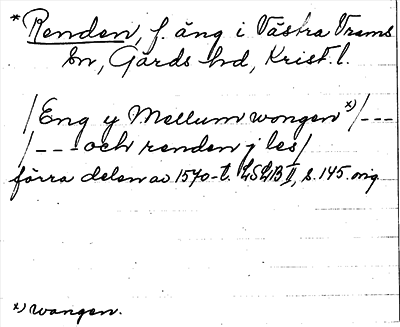 *Renden, f. äng i Västra Vrams
sn, Gärds hd, Krist. l.
/Eng y Mellum wongen *)/---
/---och renden j les/
förra delen av 1570-t. LSLB II, s. 145. orig
*) wangen.